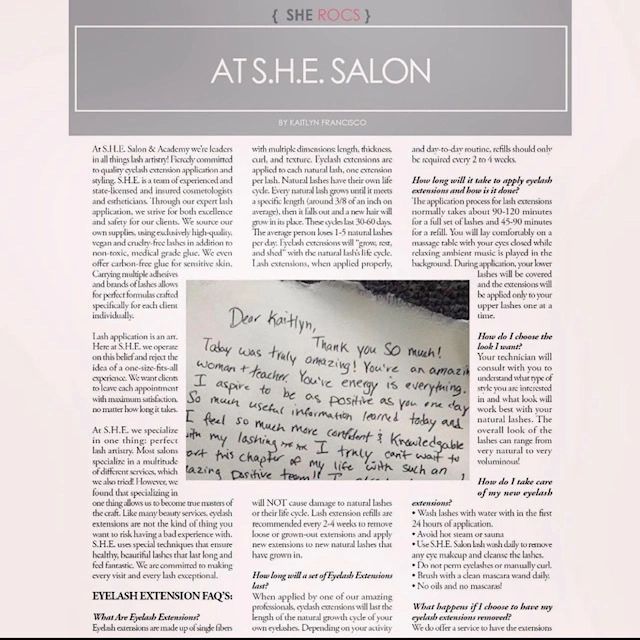 { SHE ROCS }
AT S.H.E. SALON
BY KAITLYN FRANCISCO
At S.H.E. Salon & Academy we're leaders
in all things lash artistry! Fiercely committed
to quality eyelash extension application and
styling. S.H.E. is a team of experienced and
state-licensed and insured cosmetologists
and estheticians. Through our expert lash
application, we strive for both excellence
and safety for our clients. We source our
own supplies, using exclusively high-quality,
vegan and cruelty-free lashes in addition to
non-toxic, medical grade glue. We even
offer carbon-free glue for sensitive skin.
Carrying multiple adhesives
and brands of lashes allows
for perfect formulas crafted
specifically for each client
individually.
Lash application is an art.
Here at S.H.E. we operate
on this belief and reject the
idea of a one-size-fits-all
experience. We want clients
to leave each appointment
with maximum satisfaction,
no matter how long it takes.
At S.H.E. we specialize
in one thing: perfect
lash artistry. Most salons
specialize in a multitude
of different services, which
we also tried! However, we
found that specializing in
one thing allows us to become true masters of
the craft. Like many beauty services, eyelash
extensions are not the kind of thing you
want to risk having a bad experience with.
S.H.E. uses special techniques that ensure
healthy, beautiful lashes that last long and
feel fantastic. We are committed to making
every visit and every lash exceptional.
EYELASH EXTENSION FAQ'S:
What Are Eyelash Extensions?
Eyelash extensions are made up of single fibers
with multiple dimensions: length, thickness,
curl, and texture. Eyelash extensions are
applied to each natural lash, one extension
per lash. Natural lashes have their own life
cycle. Every natural lash grows until it meets
a specific length (around 3/8 of an inch on
average), then it falls out and a new hair will
grow in its place. These cycles last 30-60 days.
The average person loses 1-5 natural lashes
per day. Eyelash extensions will "grow, rest,
and shed" with the natural lash's life cycle.
Lash extensions, when applied properly,
Dear Kaitlyn,
Thank you SO much!
Today was truly amazing! You're an amazin
woman + teacher. You're energy is everything.
I aspire to be as positive as you one day
So much useful information learned today and
I feel so much more confident & Knowledgable
my lashing I truly can't wait to
this chapter of my life with such an
azing positive team!!
will NOT cause damage to natural lashes
or their life cycle. Lash extension refills are
recommended every 2-4 weeks to remove
loose or grown-out extensions and apply
new extensions to new natural lashes that
have grown in.
How long will a set of Eyelash Extensions
last?
When applied by one of our amazing
professionals, eyelash extensions will last the
length of the natural growth cycle of your
own eyelashes. Depending on your activity
and day-to-day routine, refills should only
be required every 2 to 4 weeks.
How long will it take to apply eyelash
extensions and how is it done?
The application process for lash extensions
normally takes about 90-120 minutes
for a full set of lashes and 45-90 minutes
for a refill. You will lay comfortably on a
massage table with your eyes closed while
relaxing ambient music is played in the
background. During application, your lower
lashes will be covered
and the extensions
will be applied only to your
upper lashes one at a
time.
How do I choose the
look I want?
Your technician will
consult with you to
understand what type of
style you are interested
in and what look will
work best with your
natural lashes. The
overall look of the
lashes can range from
very natural to very
voluminous!
How do I take care
of my new eyelash
extensions?
• Wash lashes with water with in the first
24 hours of application.
• Avoid hot steam or sauna
• Use S.H.E. Salon lash wash daily to remove
any eye makeup and cleanse the lashes.
• Do not perm eyelashes or manually curl.
• Brush with a clean mascara wand daily.
• No oils and no mascaras!
What happens if I choose to have my
eyelash extensions removed?
We do offer a service to have the extensions